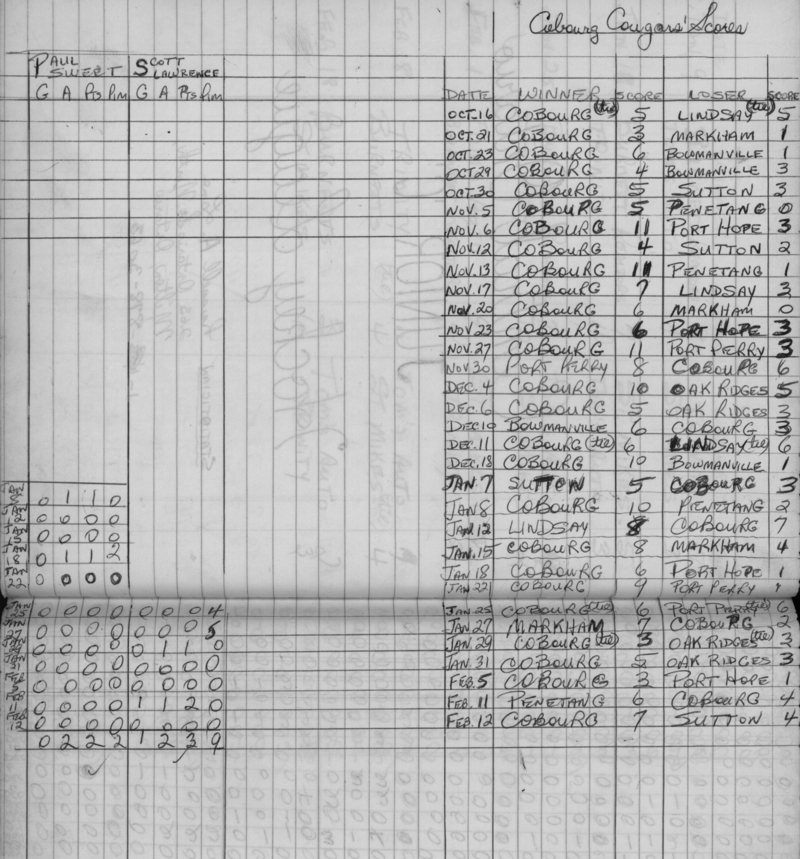 Cobourg Cougars' Scores
PAUL SWEET SCOTT LAWRENCE
G A Pts Pim G A Pts Pim
DATE WINNER SCORE LOSER SCORE
OCT.16 COBOURG (tie) 5 LINDSAY (tie) 5
OCT.21 COBOURG 3 MARKHAM 1
OCT.23 COBOURG 6 BOWMANVILLE 1
OCT.29 COBOURG 4 BOWMANVILLE 3
OCT.30 COBOURG 5 SUTTON 3
NOV.5 COBOURG 5 PENETANG 0
NOV.6 COBOURG 11 PORT HOPE 3
NOV.12 COBOURG 4 SUTTON 2
NOV.13 COBOURG 11 PENETANG 1
NOV.17 COBOURG 7 LINDSAY 3
NOV.20 COBOURG 6 MARKHAM 0
NOV.23 COBOURG 6 PORT HOPE 3
NOV.27 COBOURG 11 PORT PERRY 3
NOV.30 PORT PERRY 8 COBOURG 6
DEC.4 COBOURG 10 OAK RIDGES 5
DEC.6 COBOURG 5 OAK RIDGES 3
DEC.10 BOWMANVILLE 6 COBOURG 3
DEC.11 COBOURG (tie) 6 LINDSAY (tie) 6
DEC.18 COBOURG 10 BOWMANVILLE 1
JAN.7 SUTTON 5 COBOURG 3
JAN 8 0 1 1 0 JAN 8 COBOURG 10 PENETANG 2
JAN 12 0 0 0 0 JAN.12 LINDSAY 8 COBOURG 7
JAN 15 0 0 0 0 JAN.15 COBOURG 8 MARKHAM 4
JAN 18 0 1 1 2 JAN 18 COBOURG 6 PORT HOPE 1
JAN 22 0 0 0 0 JAN.22 COBOURG 9 PORT PERRY
JAN 25 0 0 0 0 0 0 0 4 JAN.25 COBOURG (tie) 6 PORT PERRY (tie) 6
JAN 27 0 0 0 0 0 0 0 5 JAN.27 MARKHAM 7 COBOURG 2
JAN 29 0 0 0 0 0 1 1 0 JAN.29 COBOURG (tie) 3 OAK RIDGES (tie) 3
JAN 31 0 0 0 0 0 0 0 0 JAN.31 COBOURG 5 OAK RIDGES 3
FEB 5 0 0 0 0 0 0 0 0 FEB.5 COBOURG 3 PORT HOPE 1
FEB 11 0 0 0 0 1 1 2 0 FEB.11 PENETANG 6 COBOURG 4
FEB 12 0 0 0 0 0 0 0 0 FEB.12 COBOURG 7 SUTTON 4
0 2 2 2 1 2 3 9